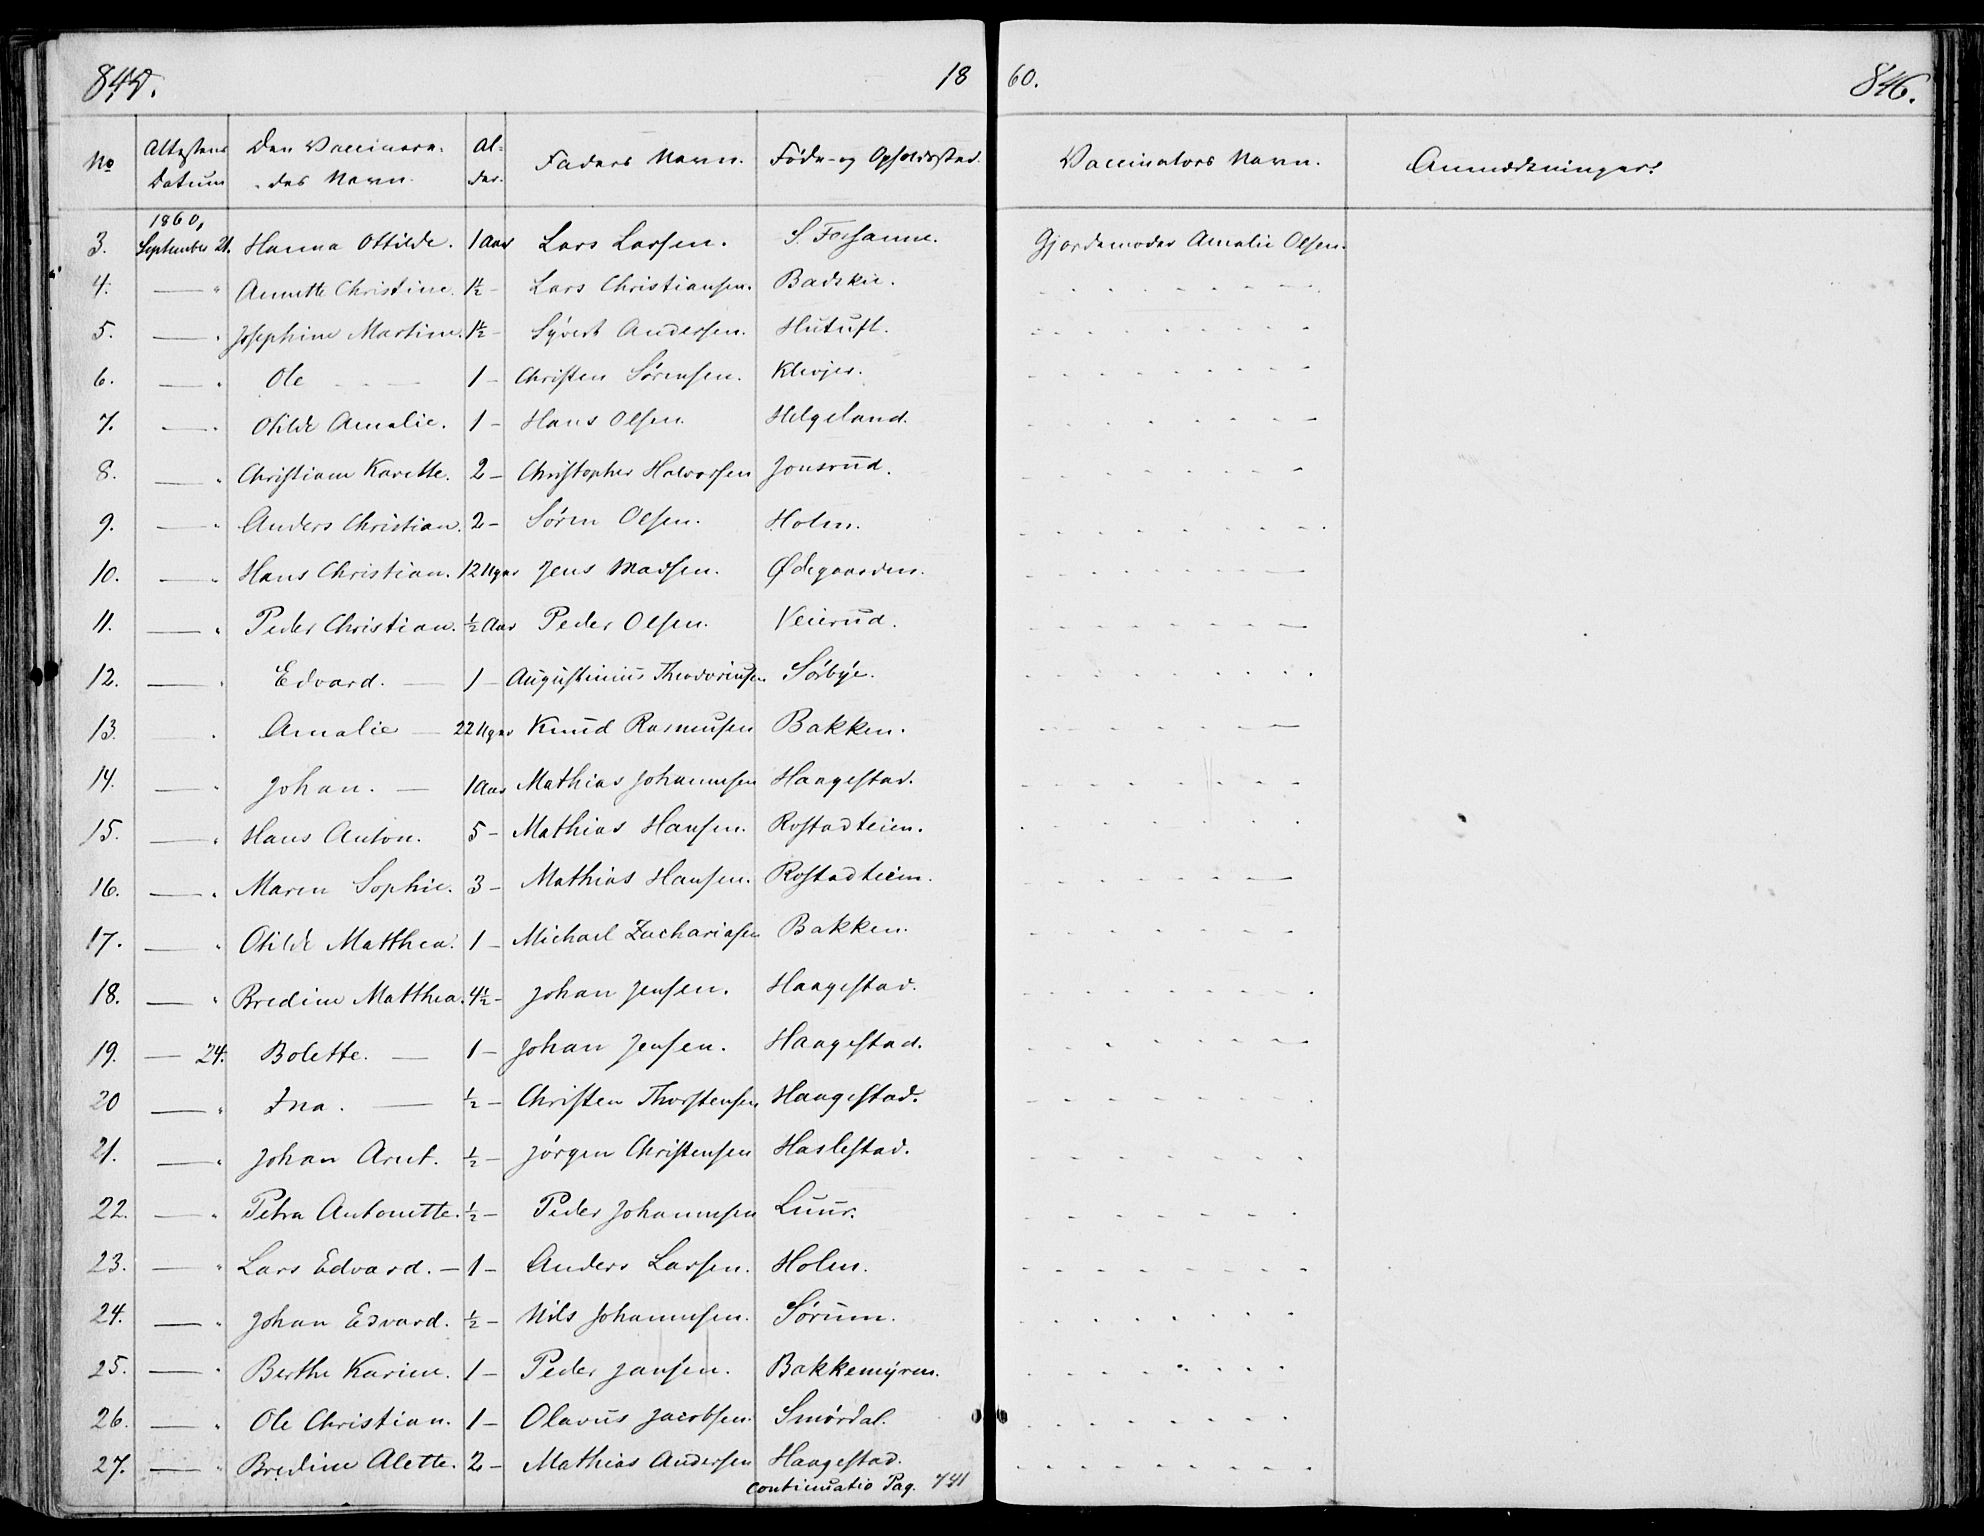 845. 18 60. 846.
No Attestens Datum Den Vaccinere- des Navn. Al- der. Faders Navn. Føde- og Opholdssted. Vaccinators Navn. Anmærkninger.
1860,
3. September 21. Hanna Ottilde. 1 Aar Lars Larsen. S. Gjordemoder Amalie Olsen.
4. — " Annette Christine. 1½ - Lars Christiansen. Badskie. - - - - - - - -
5. — " Josephine Martine. 1½ - Syvert Andersen. Hutuft. - - - - - - - -
6. — " Ole — 1 - Christen Sørensen. Klevjer. - - - - - - - -
7. — " Otilde Amalie. 1 - Hans Olsen. Helgeland. - - - - - - - -
8. — " Christiane Karette. 2 - Christopher Halvorsen Jonsrud. - - - - - - - -
9. — " Anders Christian. 2 - Søren Olsen. Holm. - - - - - - - -
10. — " Hans Christian. 12 Uger Jens Madsen. Ødegaarden. - - - - - - - -
11. — " Peder Christian. ½ Aar Peder Olsen. Veierud. - - - - - - - -
12. — " Edvard. — 1 - Augustinius Theodoriusen Sørbye. - - - - - - - -
13. — " Amalie — 22 Uger Knud Rasmusen Bakken. - - - - - - - -
14. — " Johan. — 1 Aar Mathias Johannesen Haagestad. - - - - - - - -
15. — " Hans Anton. 5 - Mathias Hansen. Rostadteien. - - - - - - - -
16. — " Maren Sophie. 3 - Mathias Hansen. Rostadteien. - - - - - - - -
17. — " Otilde Matthea. 1 - Michael Zachariasen Bakken. - - - - - - - -
18. — " Bredine Matthea. 4½ - Johan Jensen. Haagestad. - - - - - - - -
19. — 24. Bolette. — 1 - Johan Jensen. Haagestad. - - - - - - - -
20 — " Ina. — ½ - Christen Thorstensen Haagestad. - - - - - - - -
21. — " Johan Arnt. ½ - Jörgen Christensen Haslestad. - - - - - - - -
22. — " Petra Antonette. ½ - Peder Johannesen Luur. - - - - - - - -
23. — " Lars Edvard. — 1 - Anders Larsen. Holm. - - - - - - - -
24. — " Johan Edvard. ½ - Nils Johannesen. Sørum. - - - - - - - -
25. — " Berthe Karine. 1 - Peder Jansen. Bakkemyren. - - - - - - - -
26. — " Ole Christian. 1 - Olavus Jacobsen. Smørdal. - - - - - - - -
27. — " Bredine Alette. 2 - Mathias Andersen Haagestad. - - - - - - - -
continuatio Pag. 741